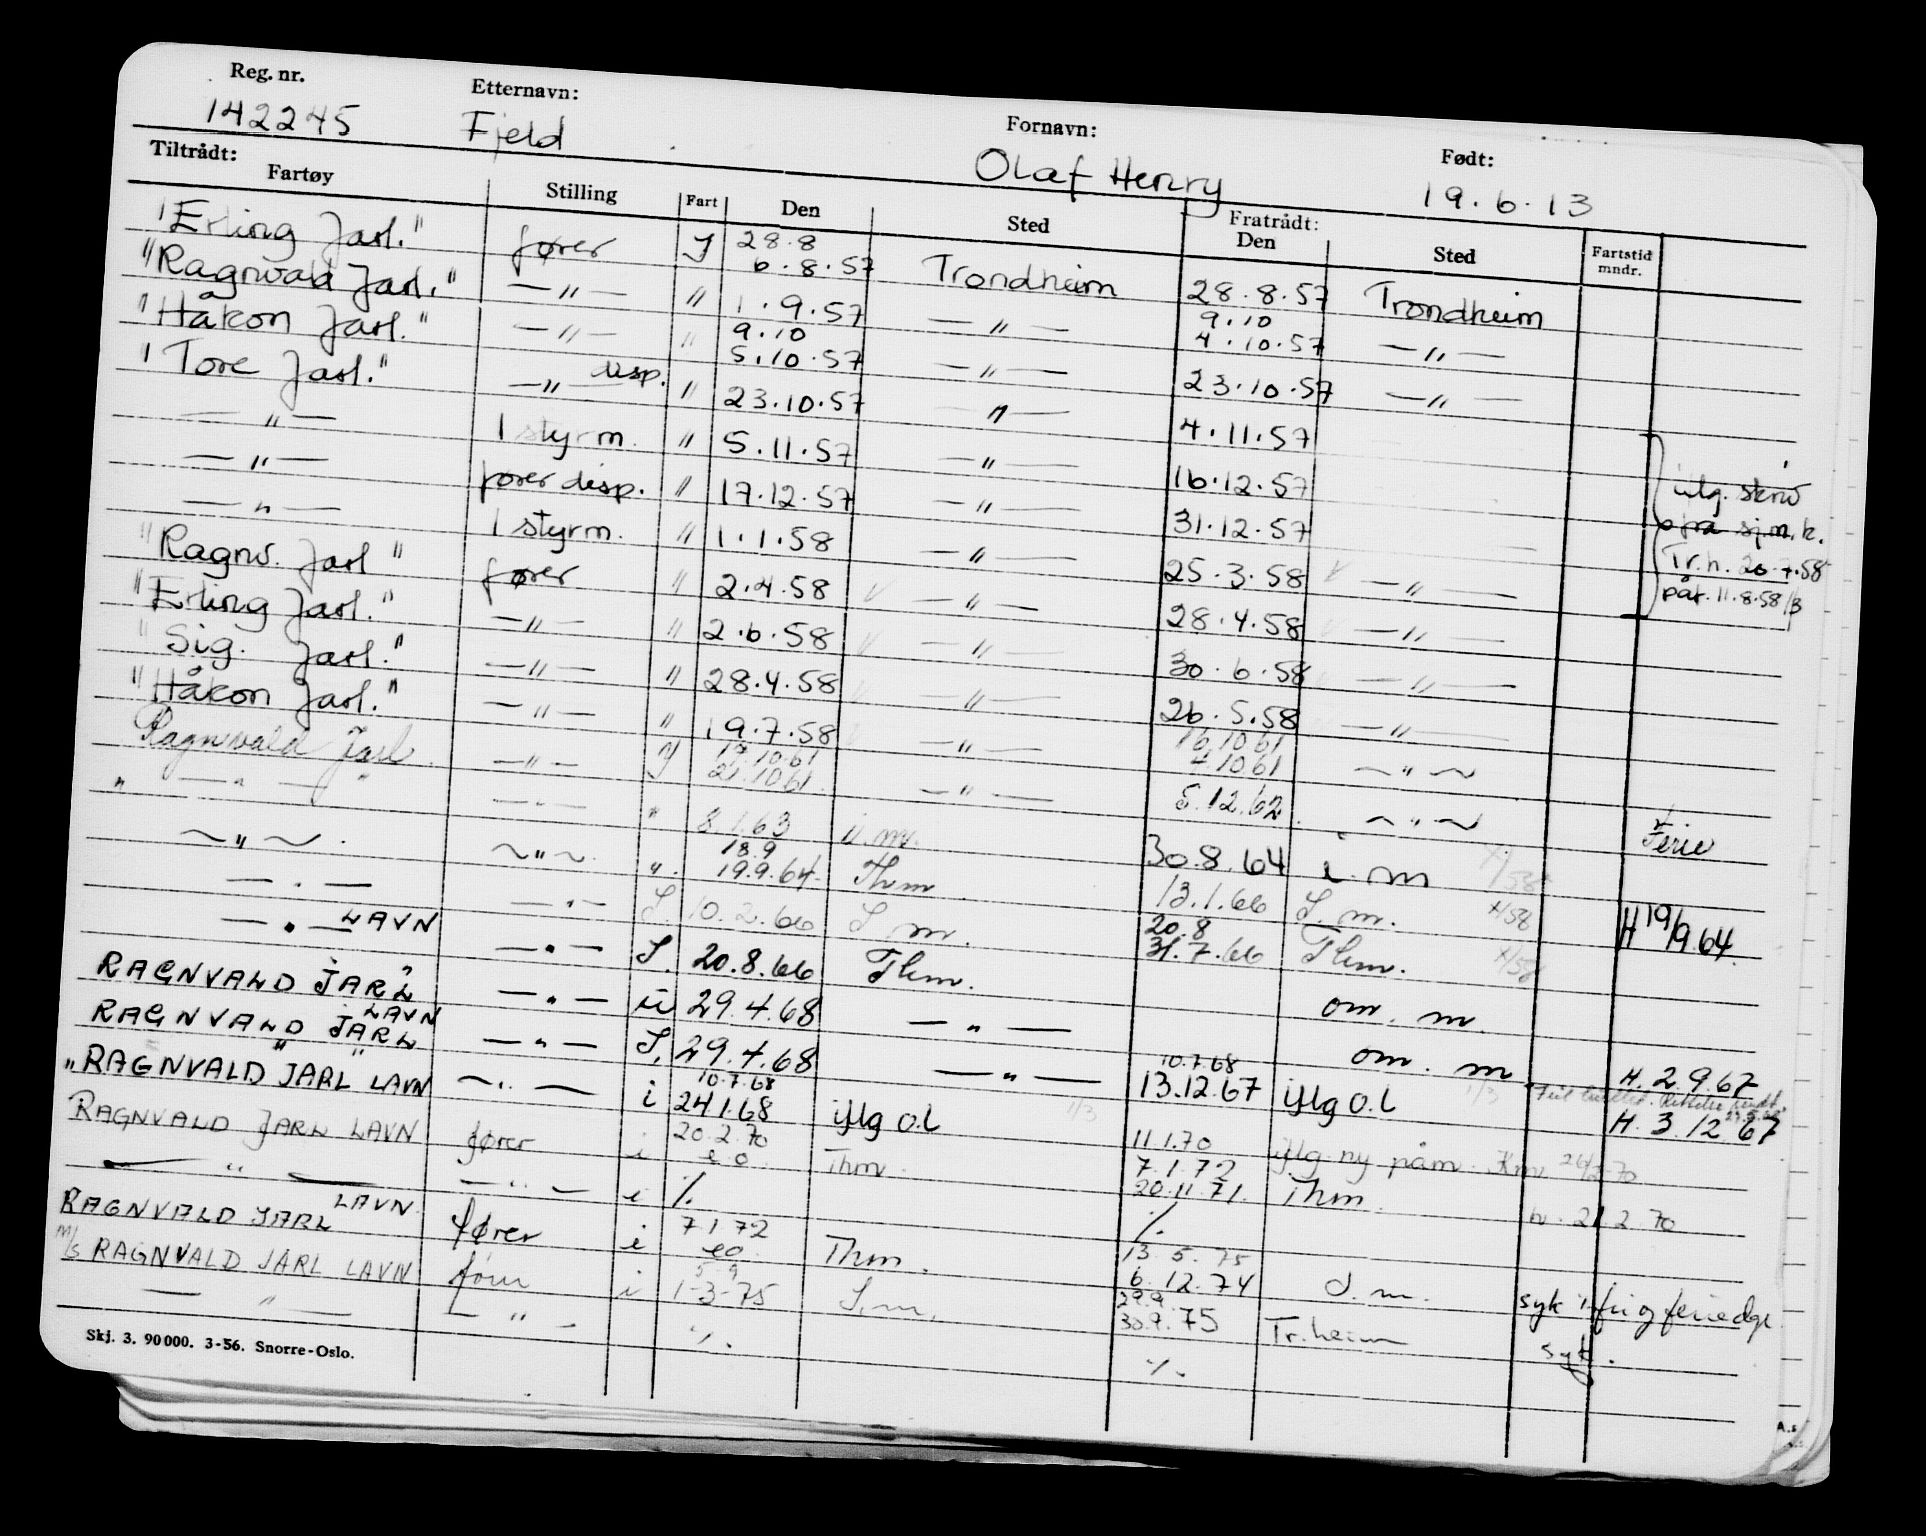 Reg. nr. Etternavn: Fornavn: Født:
142245 Fjeld Olaf Henry 19.6.13
Tiltrådt: Fratrådt:
Fartøy Stilling Fart Den Sted Den Sted Fartstid mndr.
"Erling Jarl." fører 28.8 6.8.57 Trondheim 28.8.57 Trondheim
"Ragnvald Jarl." —"— " 1.9.57 —"— 9.10 4.10.57 —"—
"Håkon Jarl." —"— " 9.10 5.10.57 —"— 23.10.57 —"—
"Tore Jarl." —"— disp. " 23.10.57 —"— 4.11.57
—"— 1 styrm. " 5.11.57 —"— 16.12.57
—"— fører disp. " 17.12.57 —"— 31.12.57
—"— 1 styrm. " 1.1.58 —"— 25.3.58 —"—
iflg. skriv
fra sj.m.k.
Tr.h. 26.7.58
påt. 11.8.58
"Ragnv. Jarl" fører " 2.4.58 —"— 28.4.58 —"—
"Erling Jarl." —"— " 2.6.58 —"— 30.6.58 —"—
"Sig. Jarl." —"— " 28.4.58 —"— 26.5.58 —"—
"Håkon Jarl." —"— " 19.7.58 —"— 16.10.61 4.10.61 —"—
Ragnvald Jarl —"— 17.10.61 21.10.61 —"— 5.12.62 —"— Ferie
" —"— " —"— " 8.1.63 i.m. 30.8.64 i. m
—"— . —"— " 18.9 19.9.64 Thm 13.1.66 S. m. H 19/9.64.
—"— —"— S. 10.2.66 S m. 20.8 31.7.66 Thm.
—"— LAVN —"— S. 20.8.66 Thm. om. m.
RAGNVALD JARL —"— ü 29.4.68 —"— om. m H. 2.9.67
RAGNVALD JARL LAVN —"— S. 29.4.68 —"— 10.7.68 13.12.67 iflg O.L H. 3.12.67
"RAGNVALD JARL LAVN —"— i 10.7.68 24.1.68 iflg O.L 11.1.70 iflg ny påm.
RAGNVALD JARL LAVN fører i 20.2.70 eo Thm. 7.1.72 20.11.71. Thm. 2.70
—"— —"— i %. %.
RAGNVALD JARL LAVN. fører i 7.1.72 eo. Thm. 13.5.75 6.12.74 S. m. syk
M/S RAGNVALD JARL LAVN i 5.9 1-3-75 S.m. 29.9. 30.9.75 Tr.heim syk.
—"— —"— %. %.
Skj. 3. 90000. 3-56. Snorre-Oslo.